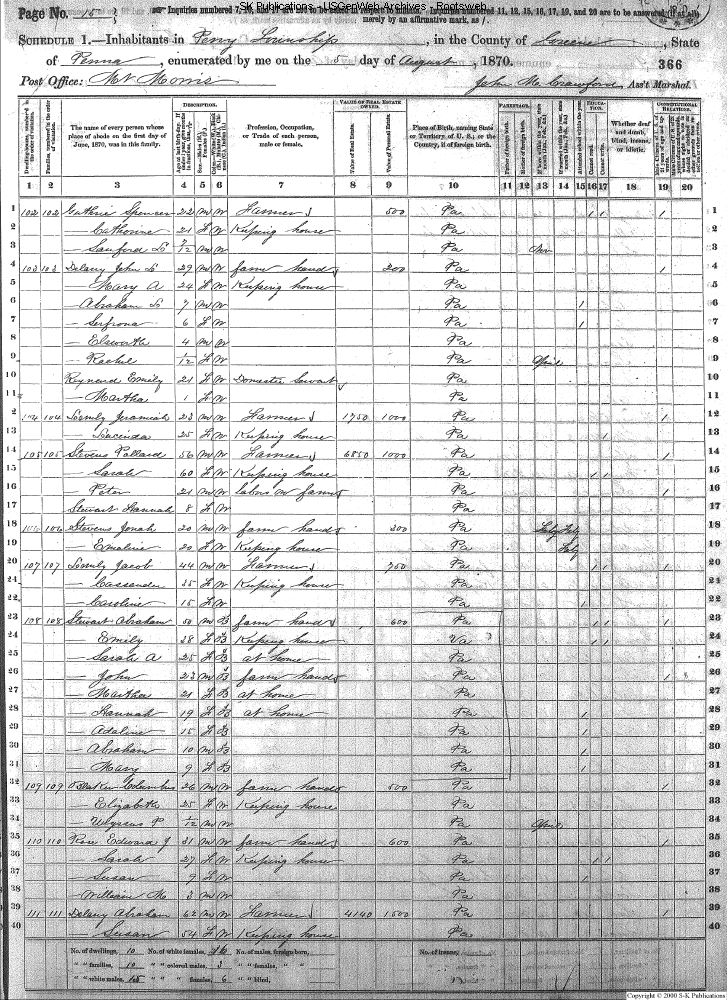 SK Publications - USGenWeb Archives - Rootsweb
Page No. 15
Inquiries numbered 7, 16, and 17 are not to be asked in respect to infants. Inquiries numbered 11, 12, 15, 16, 17, 19, and 20 are to be answered
merely by an affirmative mark, as /.
SCHEDULE 1.—Inhabitants in Perry Township, in the County of Greene, State
of Penna, enumerated by me on the 5 day of August, 1870. 366
Post Office: Mt Morris John M. Crawford, Ass't Marshal.
DESCRIPTION. VALUE OF REAL ESTATE OWNED. PARENTAGE. EDUCATION. CONSTITUTIONAL RELATIONS.
The name of every person whose place of abode on the first day of June, 1870, was in this family.
Profession, Occupation, or Trade of each person, male or female.
Value of Real Estate.
Value of Personal Estate.
Place of Birth, naming State or Territory of U. S.; or the Country, if of foreign birth.
Whether deaf and dumb, blind, insane, or idiotic.
1 2 3 4 5 6 7 8 9 10 11 12 13 14 15 16 17 18 19 20
1 102 102 Guthrie Spencer 22 M W Farmer 500 Pa / / / 1
2 — Catherine 21 F W Keeping house Pa 2
3 — Sanford L 7/12 M W Pa Nov 3
4 103 103 Delany John L 29 M W farm hand 200 Pa / 4
5 — Mary A 24 F W Keeping house Pa 5
6 — Abraham L 7 M W Pa / 6
7 — 6 F W Pa / 7
8 — Elsworth 4 M W Pa 8
9 — Rachel 1/12 F W Pa April 9
10 Reynerd Emily 21 F W Domestic Servant Pa 10
11 — Martha 1 F W Pa 11
12 104 104 Jeremiah 23 M W Farmer 1750 1000 Pa / 12
13 — Lucinda 25 F W Keeping house Pa / 13
14 105 105 Stevens Pollard 56 M W Farmer 6850 1000 Pa / 14
15 — Sarah 60 F W Keeping house Pa / / 15
16 — Peter 21 M W labor on farm Pa / 16
17 Stewart Hannah 8 F W Pa 17
18 106 106 Stevens Jonah 20 M W farm hand 300 Pa July July 18
19 — Emaline 20 F W Keeping house Pa July 19
20 107 107 Jacob 44 M W Farmer 750 Pa / / / 20
21 — Cassander 35 F W Keeping house Pa 21
22 — Caroline 15 F W Pa / 22
23 108 108 Stewart Abraham 50 M B farm hand 600 Pa / / / 23
24 — Emily 38 F B Keeping house Va / / 24
25 — Sarah A 25 F B at home Pa 25
26 — John 23 M B farm hand Pa / 26
27 — Martha 21 F B at home Pa 27
28 — Hannah 19 F B at home Pa / 28
29 — Adaline 15 F B Pa / 29
30 — Abraham 10 M B Pa / 30
31 — Mary 9 F B Pa / 31
32 109 109 Columbus 26 M W farm hand 500 Pa / 32
33 — Elizabeth 25 F W Keeping house Pa 33
34 — Ulyssus P 1/12 M W Pa April 34
35 110 110 Rose Edward J 31 M W farm hand 600 Pa / 35
36 — Sarah 27 F W Keeping house Pa / / 36
37 — Susan 9 F W Pa / 37
38 — William M 3 M W Pa 38
39 111 111 Delany Abraham 62 M W Farmer 4140 1500 Pa / 39
40 — Susan 54 F W Keeping house Pa 40
No. of dwellings, 10 No. of white females, 16 No. of males, foreign born, No. of insane,
" " families, 10 " " colored males, 3 " " females, " "
" " white males, 15 " " " females, 6 " " blind,
Copyright © 2000 S-K Publications